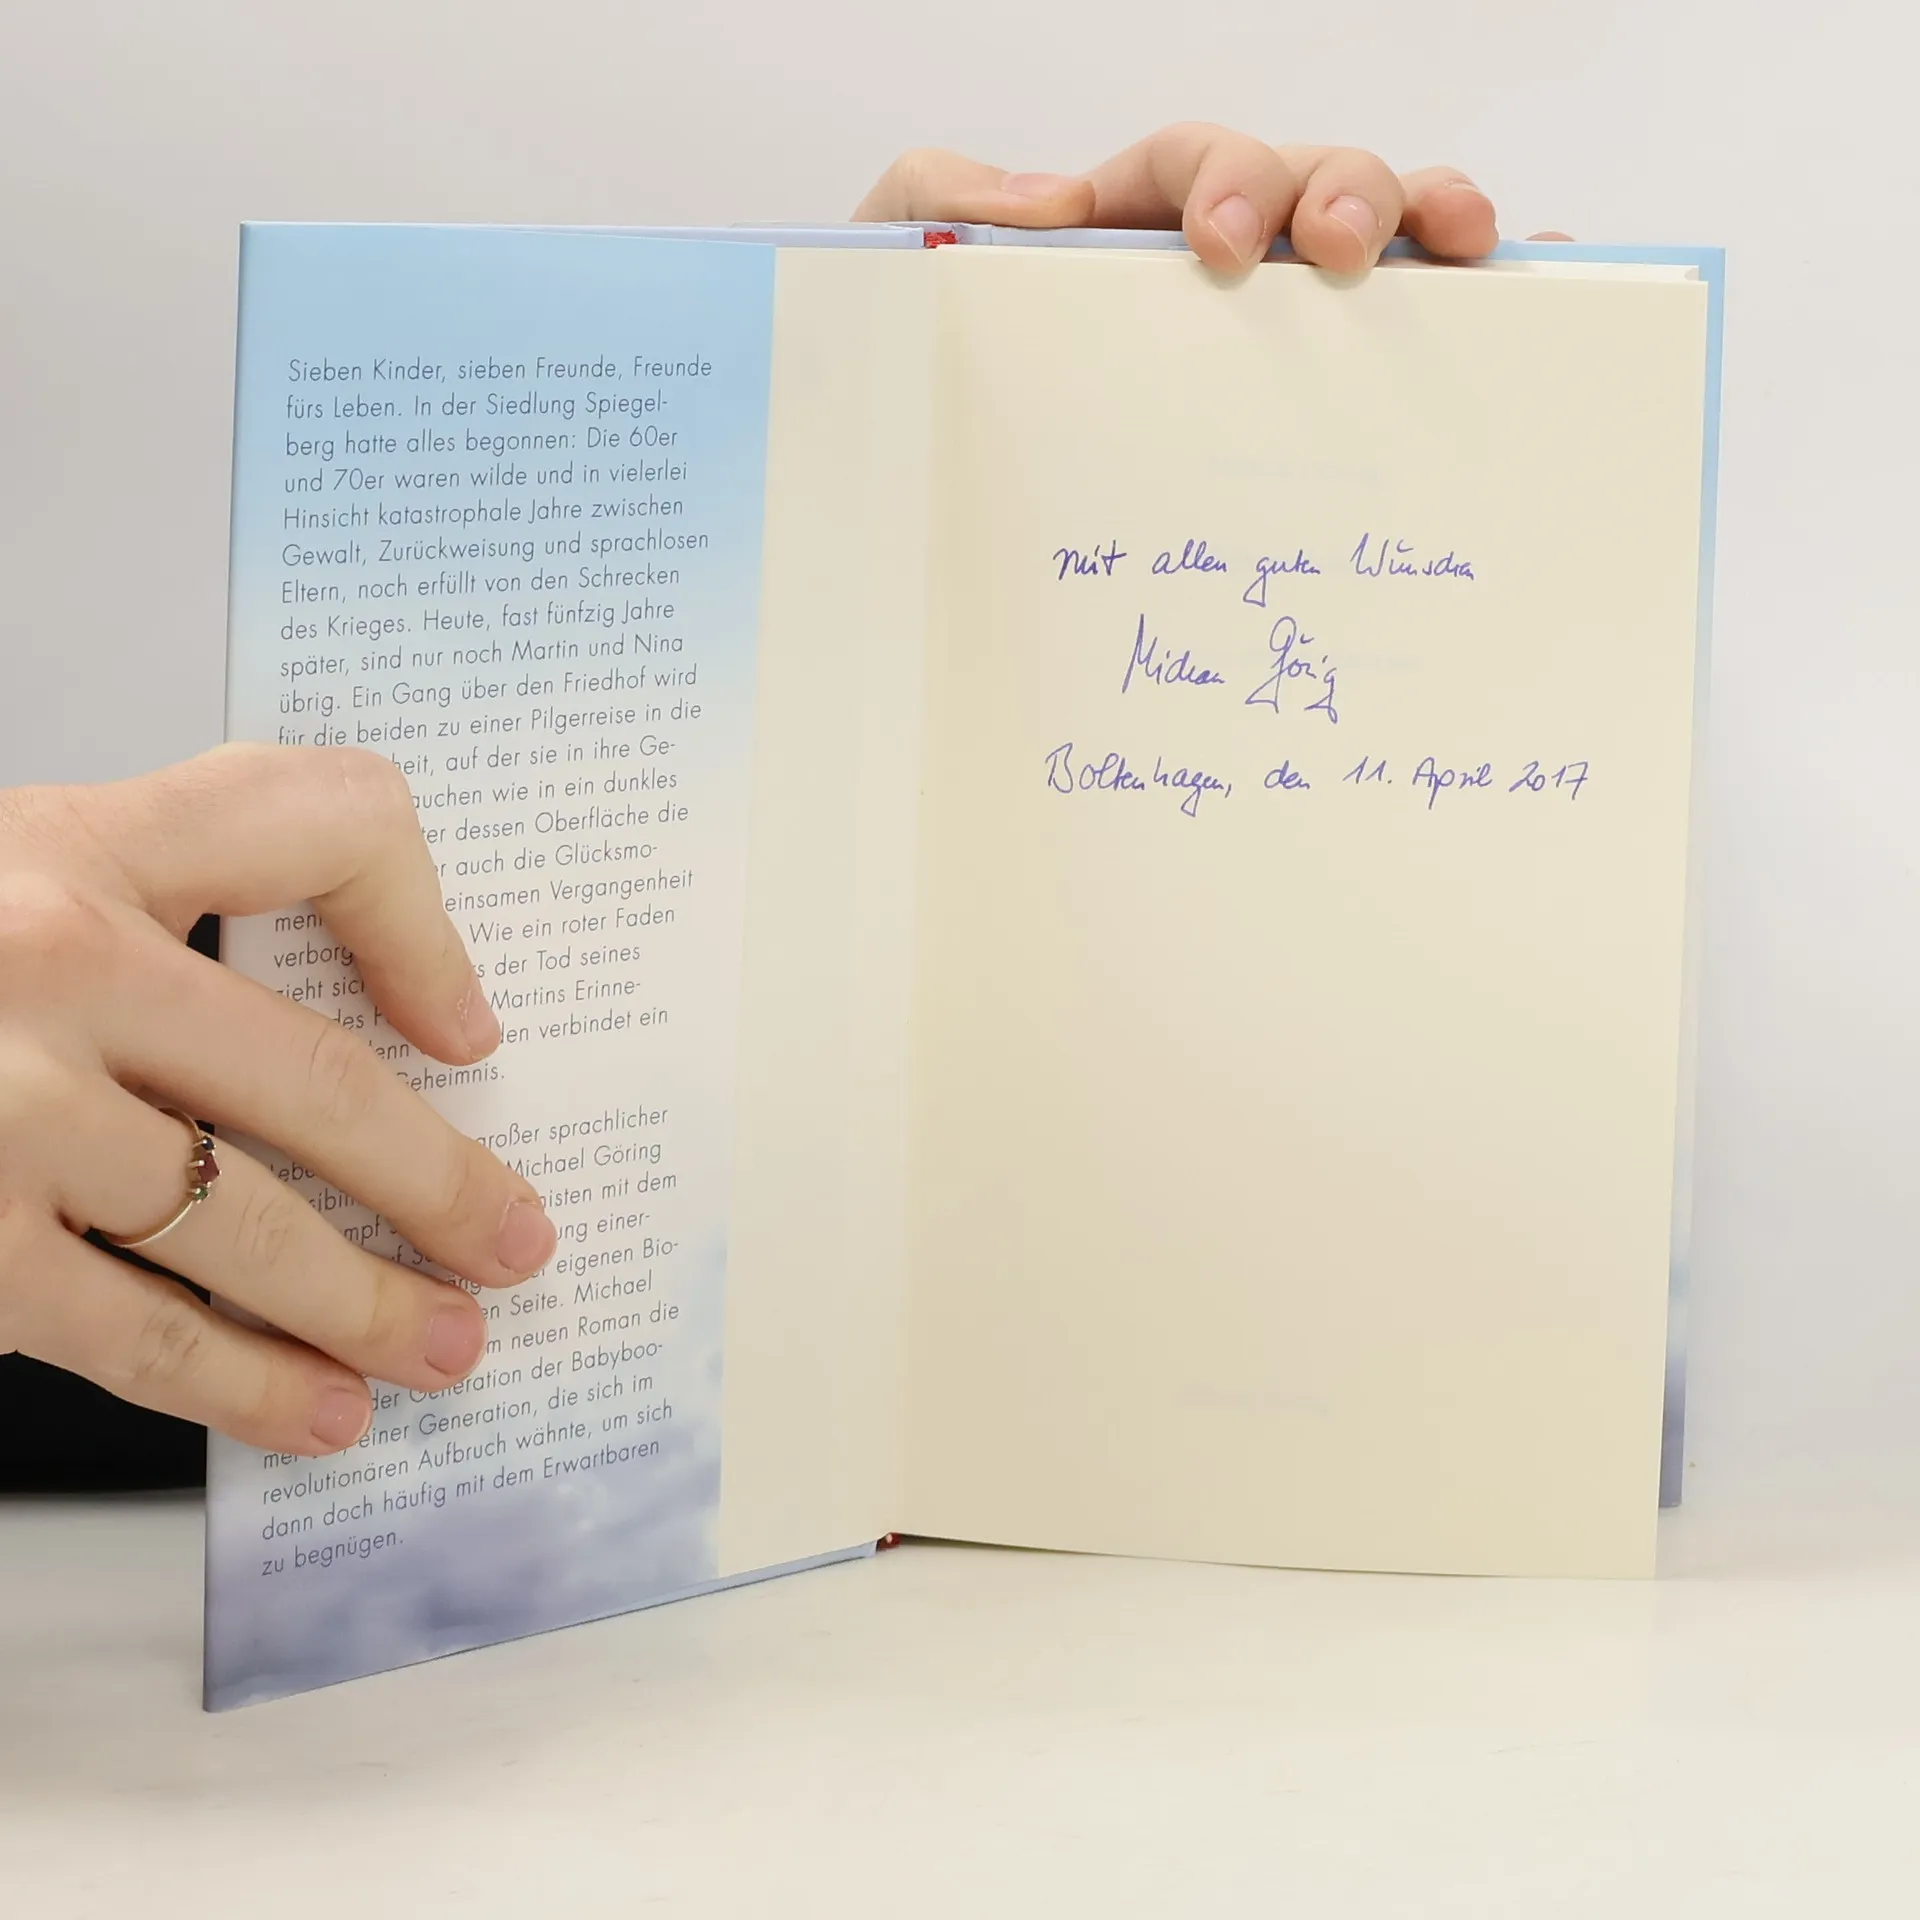 Sieben Kinder, sieben Freunde, Freunde
fürs Leben. In der Siedlung Spiegel-
berg hatte alles begonnen: Die 60er
und 70er waren wilde und in vielerlei
Hinsicht katastrophale Jahre zwischen
Gewalt, Zurückweisung und sprachlosen
Eltern, noch erfüllt von den Schrecken
des Krieges. Heute, fast fünfzig Jahre
später, sind nur noch Martin und Nina
übrig. Ein Gang über den Friedhof wird
für die beiden zu einer Pilgerreise in die
heit, auf der sie in ihre Ge-
auchen wie in ein dunkles
ter dessen Oberfläche die
r auch die Glücksmo-
einsamen Vergangenheit
verborg Wie ein roter Faden
zieht sich der Tod seines
des Martins Erinne-
den verbindet ein
Geheimnis.
großer sprachlicher
Michael Göring
nisten mit dem
ung einer-
eigenen Bio-
en Seite. Michael
m neuen Roman die
der Generation der Babyboo-
mer einer Generation, die sich im
revolutionären Aufbruch wähnte, um sich
dann doch häufig mit dem Erwartbaren
zu begnügen.
mit allen guten Wünschen
Michael Göring
Boltenhagen, den 11. April 2017